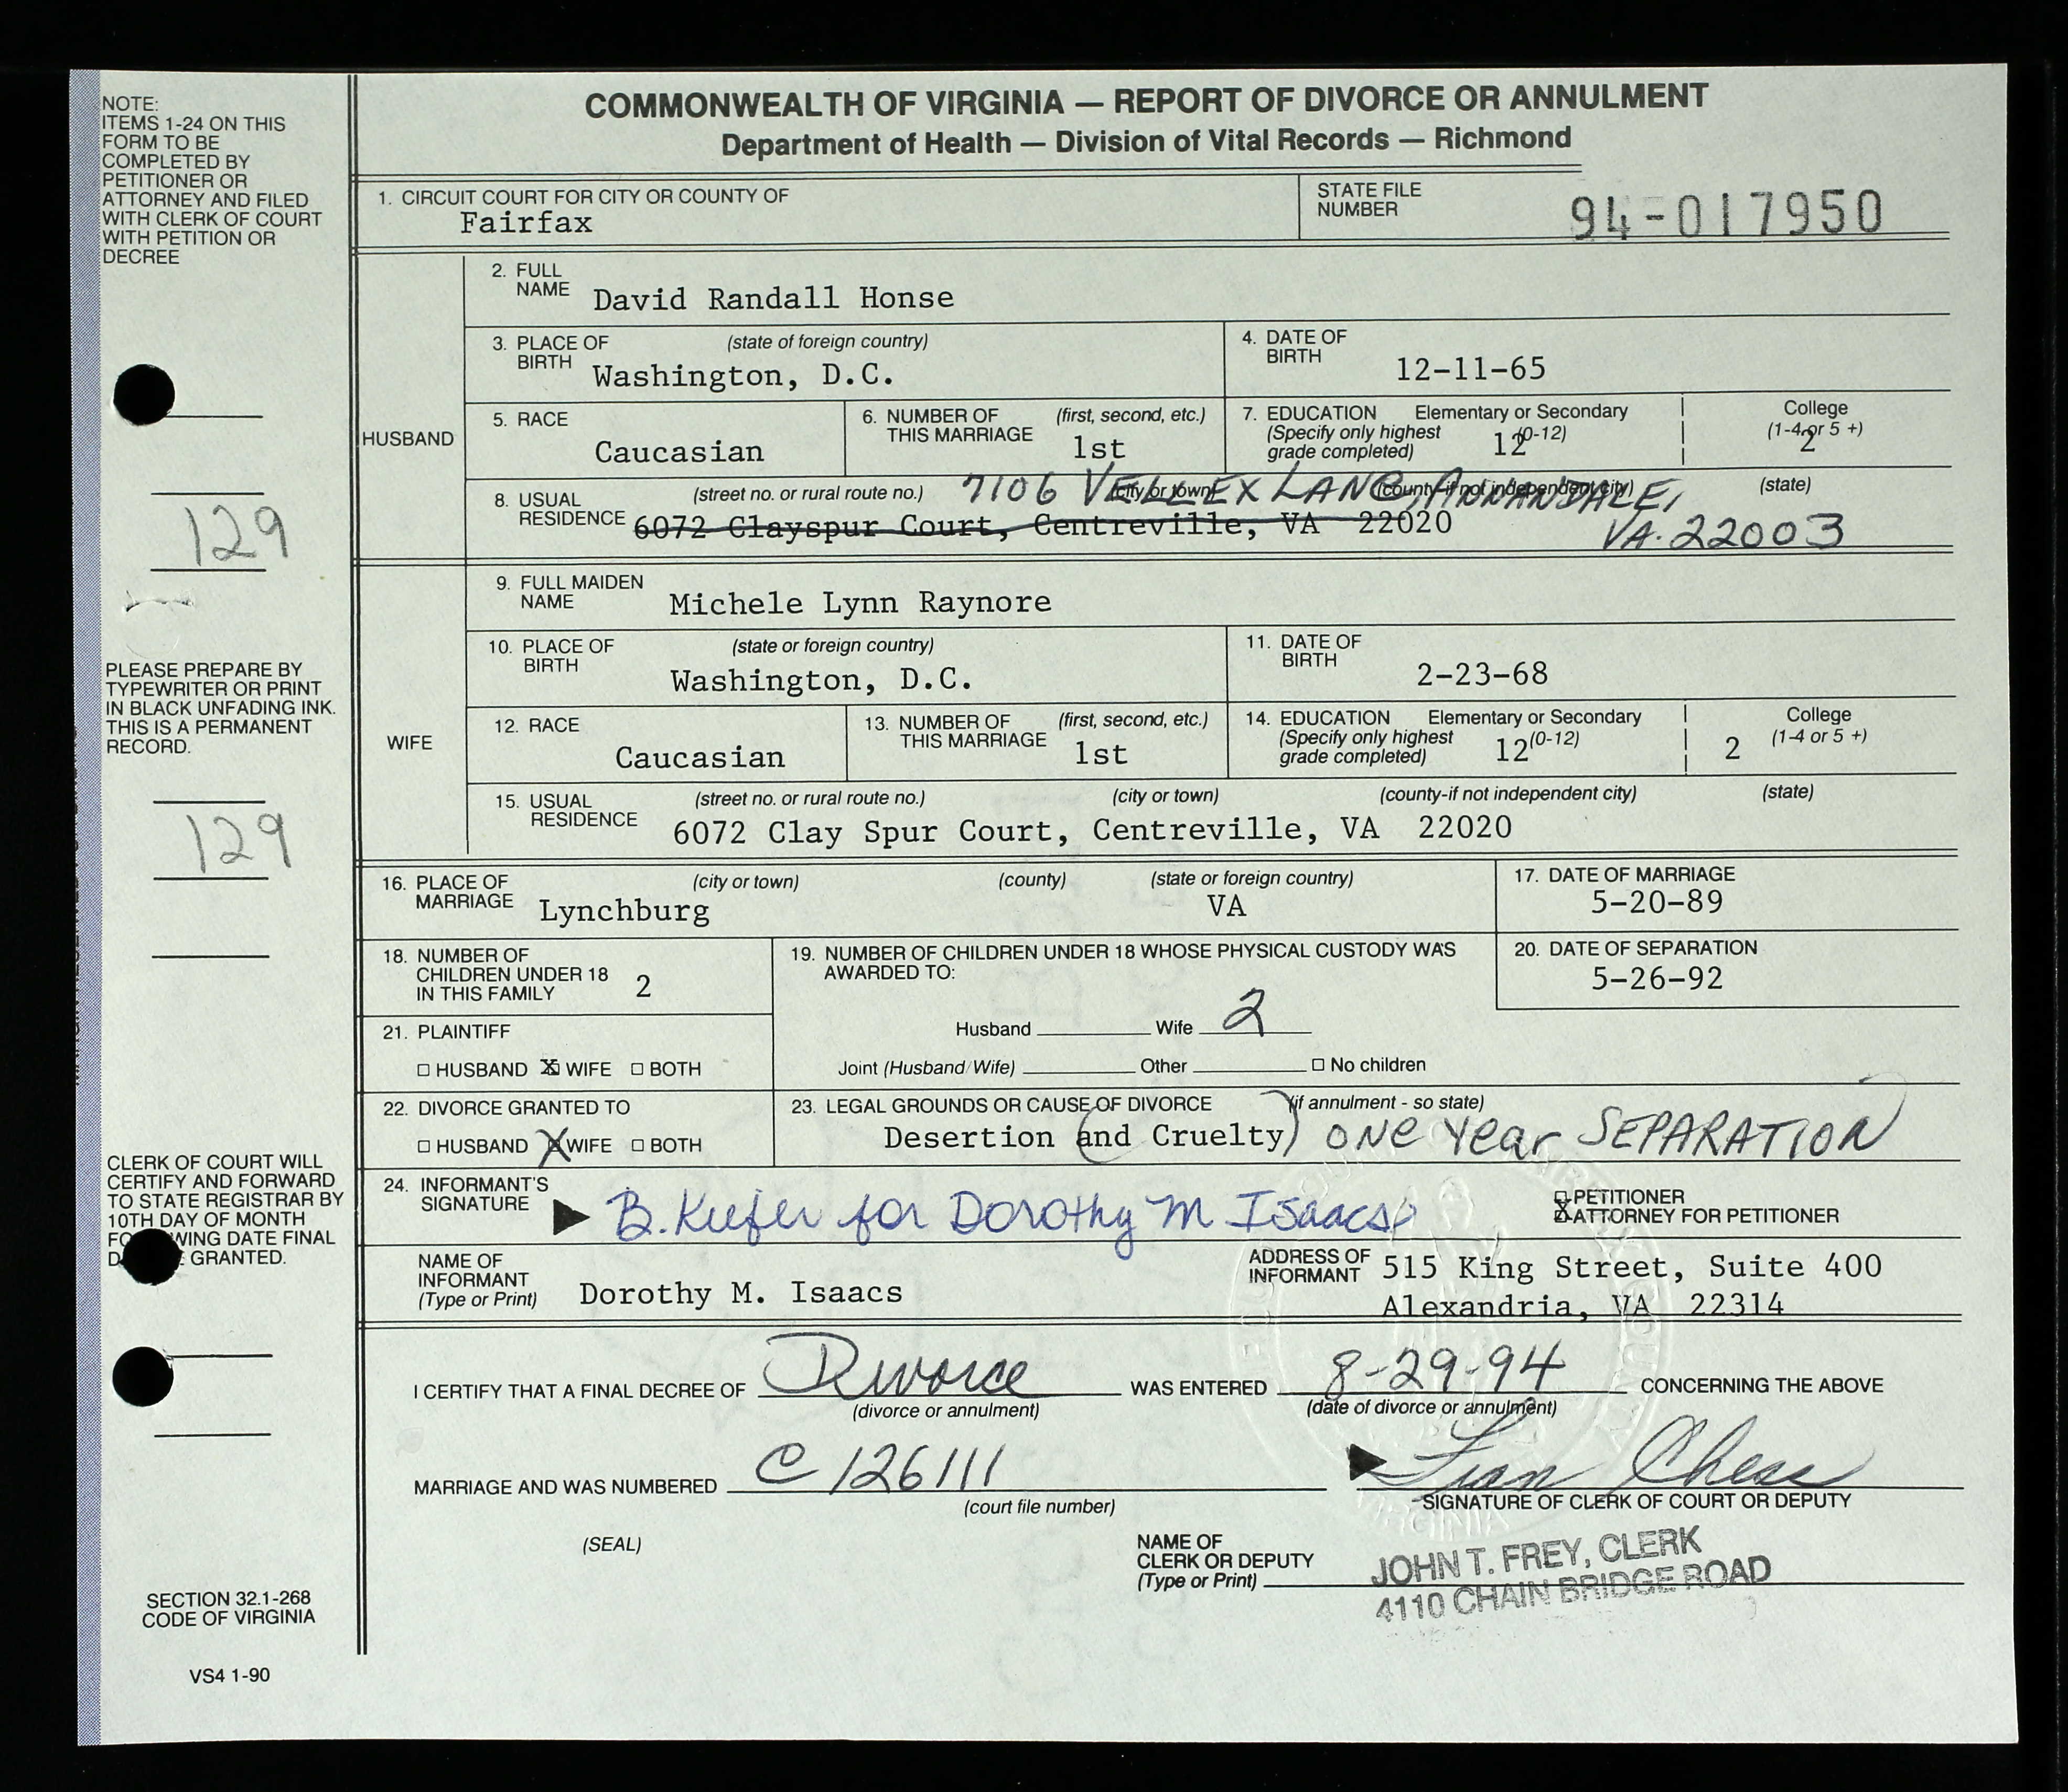 COMMONWEALTH OF VIRGINIA — REPORT OF DIVORCE OR ANNULMENT
Department of Health — Division of Vital Records — Richmond
NOTE:
ITEMS 1-24 ON THIS
FORM TO BE
COMPLETED BY
PETITIONER OR
ATTORNEY AND FILED
WITH CLERK OF COURT
WITH PETITION OR
DECREE
129
PLEASE PREPARE BY
TYPEWRITER OR PRINT
IN BLACK UNFADING INK.
THIS IS A PERMANENT
RECORD.
129
CLERK OF COURT WILL
CERTIFY AND FORWARD
TO STATE REGISTRAR BY
10TH DAY OF MONTH
WING DATE FINAL
GRANTED.
SECTION 32.1-268
CODE OF VIRGINIA
VS4 1-90
1. CIRCUIT COURT FOR CITY OR COUNTY OF
Fairfax
STATE FILE
NUMBER 94-017950
HUSBAND
2. FULL
NAME David Randall Honse
3. PLACE OF (state of foreign country)
BIRTH Washington, D.C.
4. DATE OF
BIRTH 12-11-65
5. RACE
Caucasian
6. NUMBER OF (first, second, etc.)
THIS MARRIAGE 1st
7. EDUCATION Elementary or Secondary College
(Specify only highest (0-12) (1-4 or 5 +)
grade completed) 12 2
8. USUAL (street no. or rural route no.) (city or town) (county-if not independent city) (state)
7106 VELLEX LANE, ANNANDALE,
RESIDENCE 6072 Clayspur Court, Centreville, VA 22020 VA. 22003
WIFE
9. FULL MAIDEN
NAME Michele Lynn Raynore
10. PLACE OF (state or foreign country)
BIRTH Washington, D.C.
11. DATE OF
BIRTH 2-23-68
12. RACE
Caucasian
13. NUMBER OF (first, second, etc.)
THIS MARRIAGE 1st
14. EDUCATION Elementary or Secondary College
(Specify only highest (0-12) (1-4 or 5 +)
grade completed) 12 2
15. USUAL (street no. or rural route no.) (city or town) (county-if not independent city) (state)
RESIDENCE 6072 Clay Spur Court, Centreville, VA 22020
16. PLACE OF (city or town) (county) (state or foreign country)
MARRIAGE Lynchburg VA
17. DATE OF MARRIAGE
5-20-89
18. NUMBER OF
CHILDREN UNDER 18
IN THIS FAMILY 2
19. NUMBER OF CHILDREN UNDER 18 WHOSE PHYSICAL CUSTODY WAS
AWARDED TO:
Husband Wife 2
Joint (Husband/Wife) Other □ No children
20. DATE OF SEPARATION
5-26-92
21. PLAINTIFF
□ HUSBAND X WIFE □ BOTH
22. DIVORCE GRANTED TO
□ HUSBAND X WIFE □ BOTH
23. LEGAL GROUNDS OR CAUSE OF DIVORCE (if annulment - so state)
Desertion (and Cruelty) ONE Year SEPARATION
24. INFORMANT'S
SIGNATURE B. Kiefer for Dorothy M Isaacs
□ PETITIONER
X ATTORNEY FOR PETITIONER
NAME OF
INFORMANT
(Type or Print) Dorothy M. Isaacs
ADDRESS OF
INFORMANT 515 King Street, Suite 400
Alexandria, VA 22314
I CERTIFY THAT A FINAL DECREE OF Divorce WAS ENTERED 8-29-94 CONCERNING THE ABOVE
(divorce or annulment) (date of divorce or annulment)
MARRIAGE AND WAS NUMBERED C 126111
(court file number)
SIGNATURE OF CLERK OF COURT OR DEPUTY
(SEAL)
NAME OF
CLERK OR DEPUTY
(Type or Print)
JOHN T. FREY, CLERK
4110 CHAIN BRIDGE ROAD